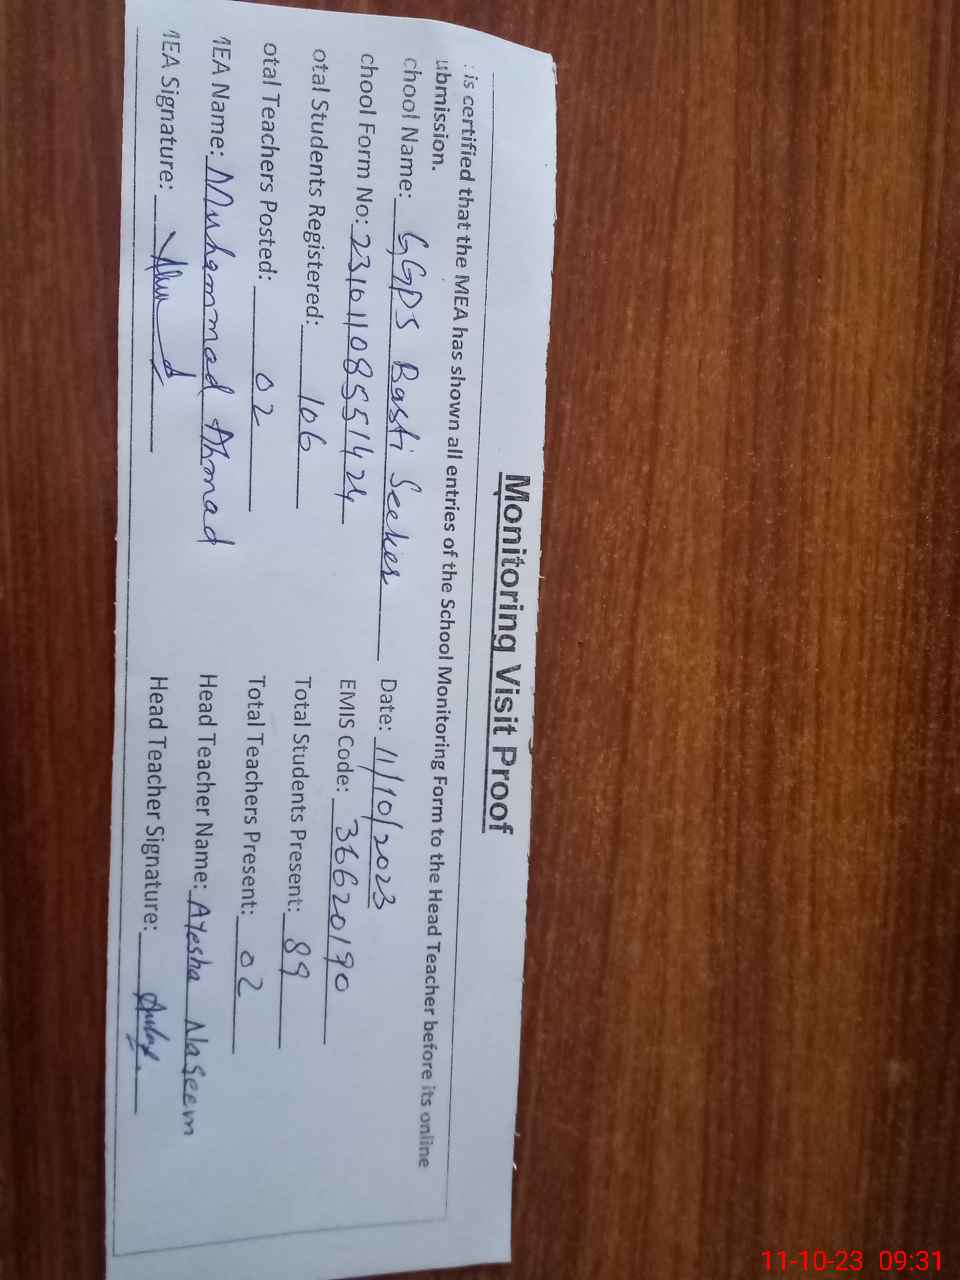 Monitoring Visit Proof
is certified that the MEA has shown all entries of the School Monitoring Form to the Head Teacher before its online
ubmission.
chool Name: GGPS Basti Seeker Date: 11/10/2023
chool Form No: 23101108551424 EMIS Code: 36620190
otal Students Registered: 106 Total Students Present: 89
otal Teachers Posted: 02 Total Teachers Present: 02
MEA Name: Muhammad Ahmad Head Teacher Name: Ayesha Naseem
MEA Signature: Head Teacher Signature:
11-10-23 09:31